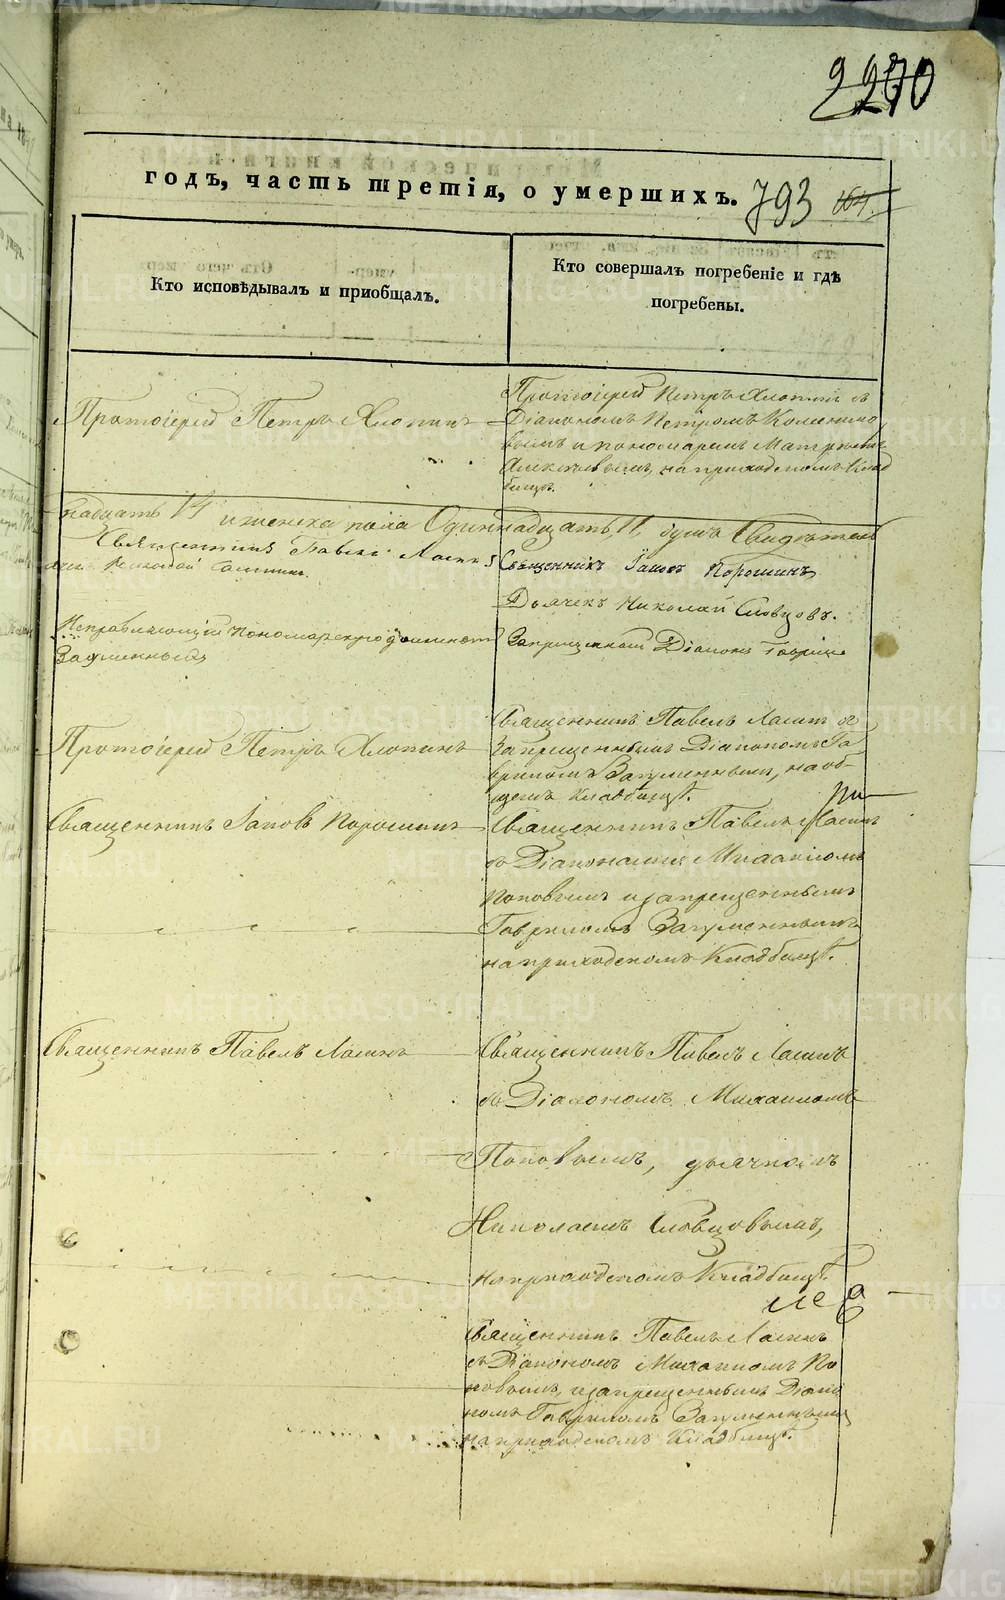 2270
годъ, часть третія, о умершихъ. 793 164.
Кто исповѣдывалъ и приобщалъ.
Кто совершалъ погребеніе и гдѣ
погребены.
Протоіерей Петръ Хлопинъ
Протоіерей Петръ Хлопинъ съ
Діакономъ Петромъ
вымъ и пономаремъ
Алексѣевымъ, на приходскомъ Клад
бищѣ.
надцать 14 и женска пола Одиннадцать, 11, душъ Свидѣтель
Священникъ Павелъ
Николай
Священникъ Іаковъ Порошинъ
Дьячекъ Николай Словцовъ.
Исправляющій пономарскую должность
Запрещенный Діаконъ Гаврилъ
Зауменныхъ
Протоіерей Петръ Хлопинъ
Священникъ Павелъ Ласинъ съ
Запрещеннымъ Діакономъ Га-
вриломъ Загуменнымъ, на об-
щемъ Кладбищѣ.
Священникъ Іаковъ Порошинъ
Священникъ Павелъ Ласинъ
съ Діаконами Михаиломъ
Поповымъ и запрещеннымъ
Гавриломъ Загуменнымъ
на приходскомъ Кладбищѣ.
Священникъ Павелъ Ласинъ
Священникъ Павелъ Ласинъ
съ Діакономъ Михаиломъ
Поповымъ, дьячкомъ
Николаемъ Словцовымъ,
на приходскомъ Кладбищѣ
Священникъ Павелъ Ласинъ
съ Діакономъ Михаиломъ По
повымъ, и запрещеннымъ Діако
номъ Гавриломъ Загуменнымъ
на приходскомъ Кладбищѣ.
METRIKI.GASO-URAL.RU